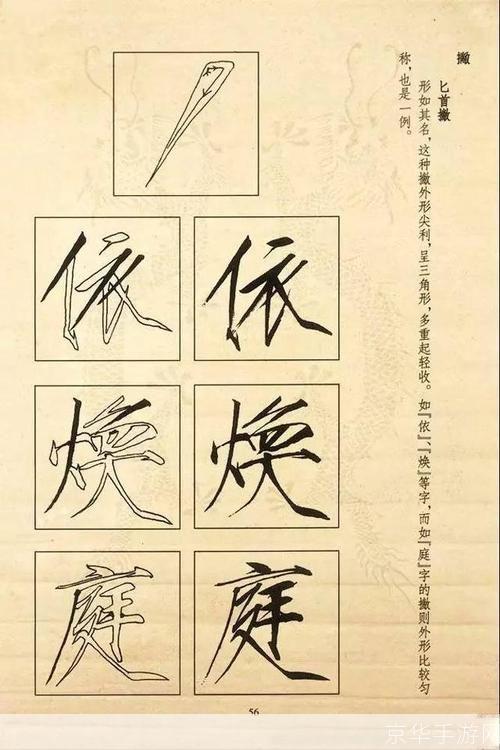 撇
匕首撇
形如其名，这种撇外形尖利，呈三角形，多重起轻收。如『依』、『焕』等字，而如『庭』字的撇则外形比较匀
称，也是一例。
依 依
焕 焕
庭 庭
56
京华手游网